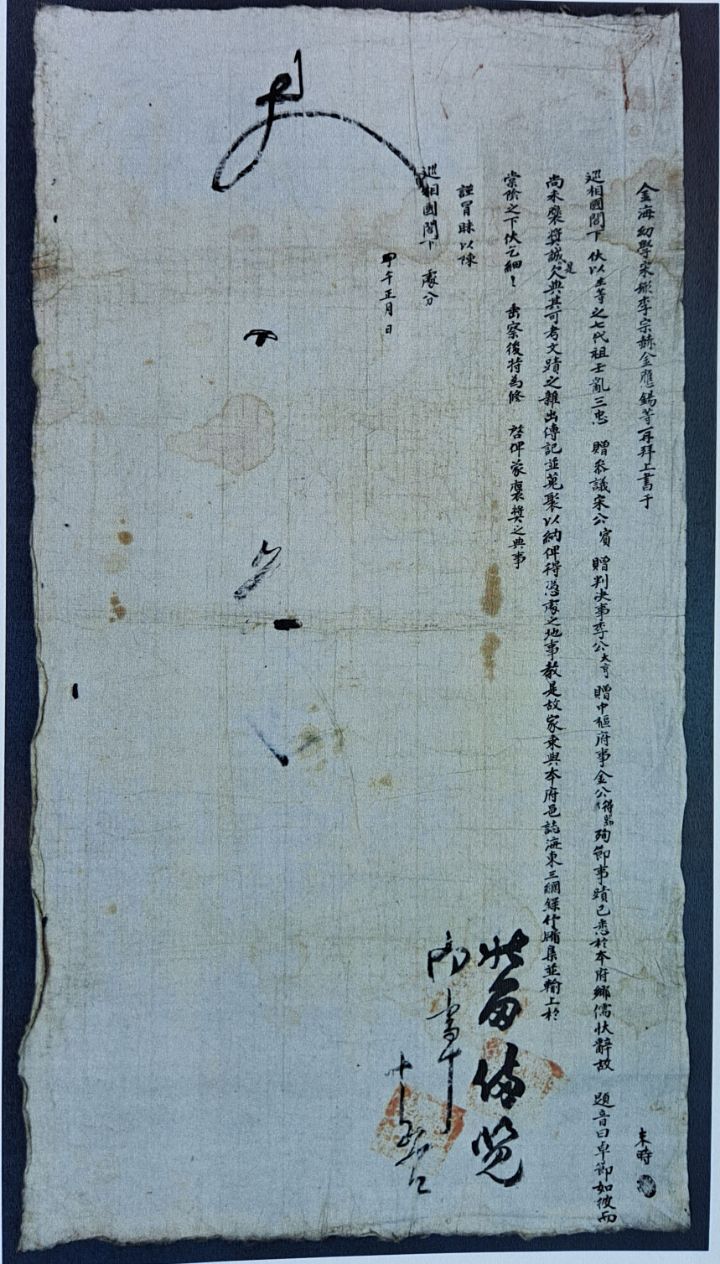 金海幼學宋彬李宗赫金應錫等再拜上書于
巡相國閤下 伏以生等之七代祖壬亂三忠 贈參議宋公賓 贈判決事李公大亨 贈中樞府事金公得器殉節事蹟已悉於本府鄕儒狀辭故 題音曰卓節如彼而
尚未褒奬誠是欠典其可考文蹟之雜出傳記並蒐聚以納俾得憑處之地事敎是故家乘與本府邑誌海東三綱錄竹牖集並輸上於
棠陰之下伏乞細〻 垂察後特爲修 啓俾蒙褒奬之典事
謹冒昧以陳
巡相國閤下 處分
甲午正月 日
狀留備覽
向事
十五